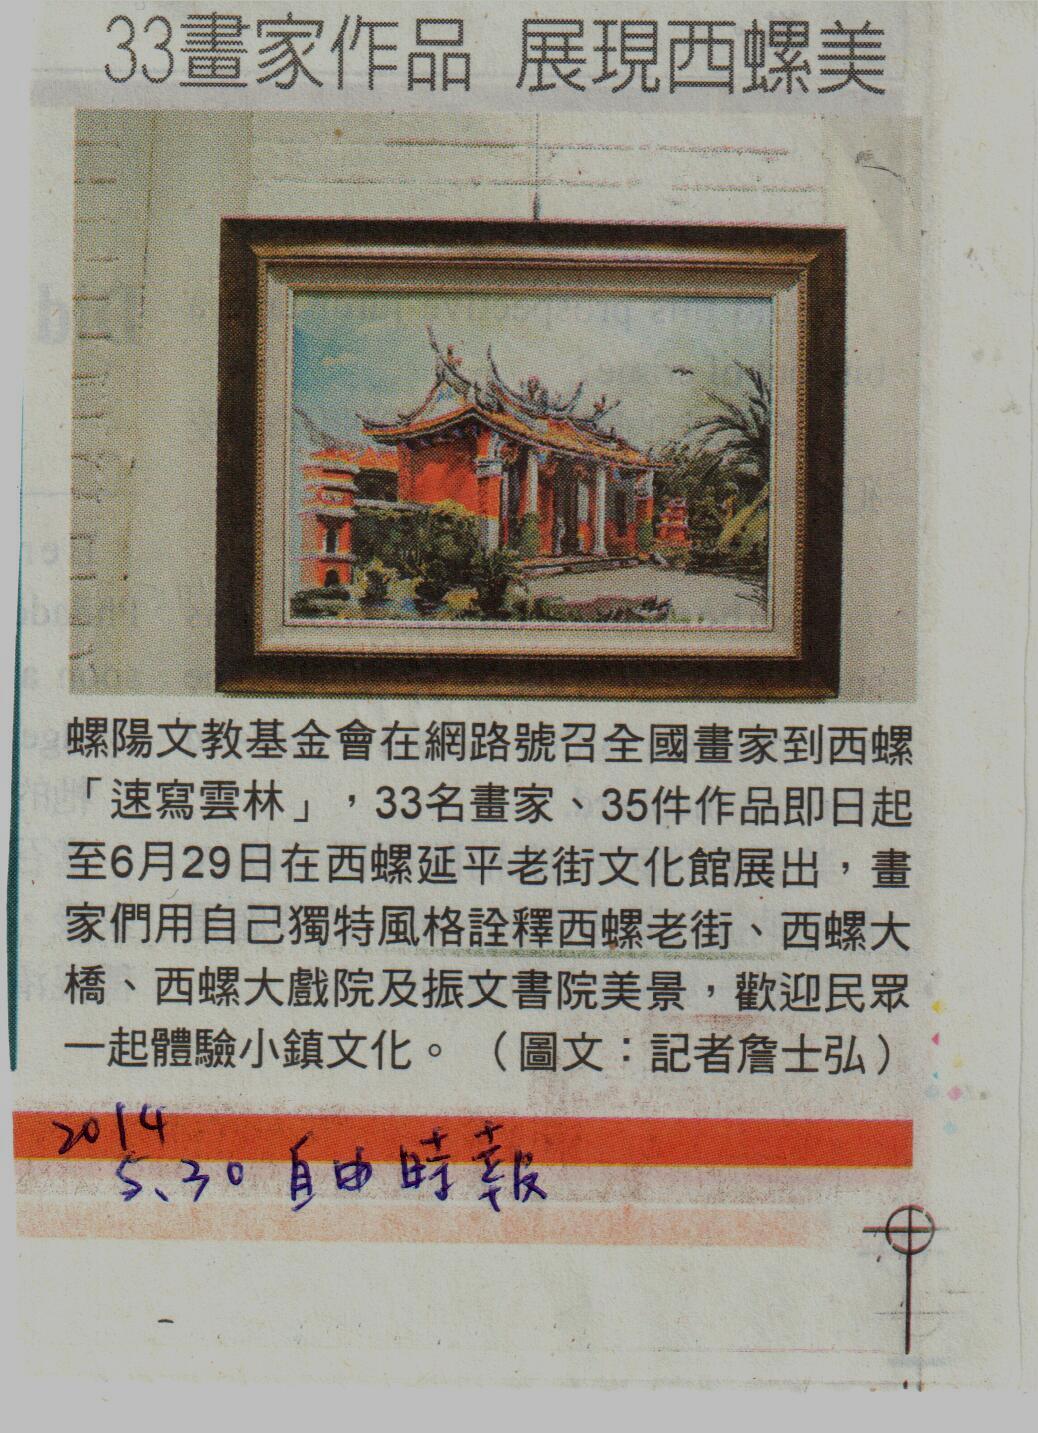 33畫家作品 展現西螺美
螺陽文教基金會在網路號召全國畫家到西螺
「速寫雲林」，33名畫家、35件作品即日起
至6月29日在西螺延平老街文化館展出，畫
家們用自己獨特風格詮釋西螺老街、西螺大
橋、西螺大戲院及振文書院美景，歡迎民眾
一起體驗小鎮文化。（圖文：記者詹士弘）
2014
5、30 自由時報